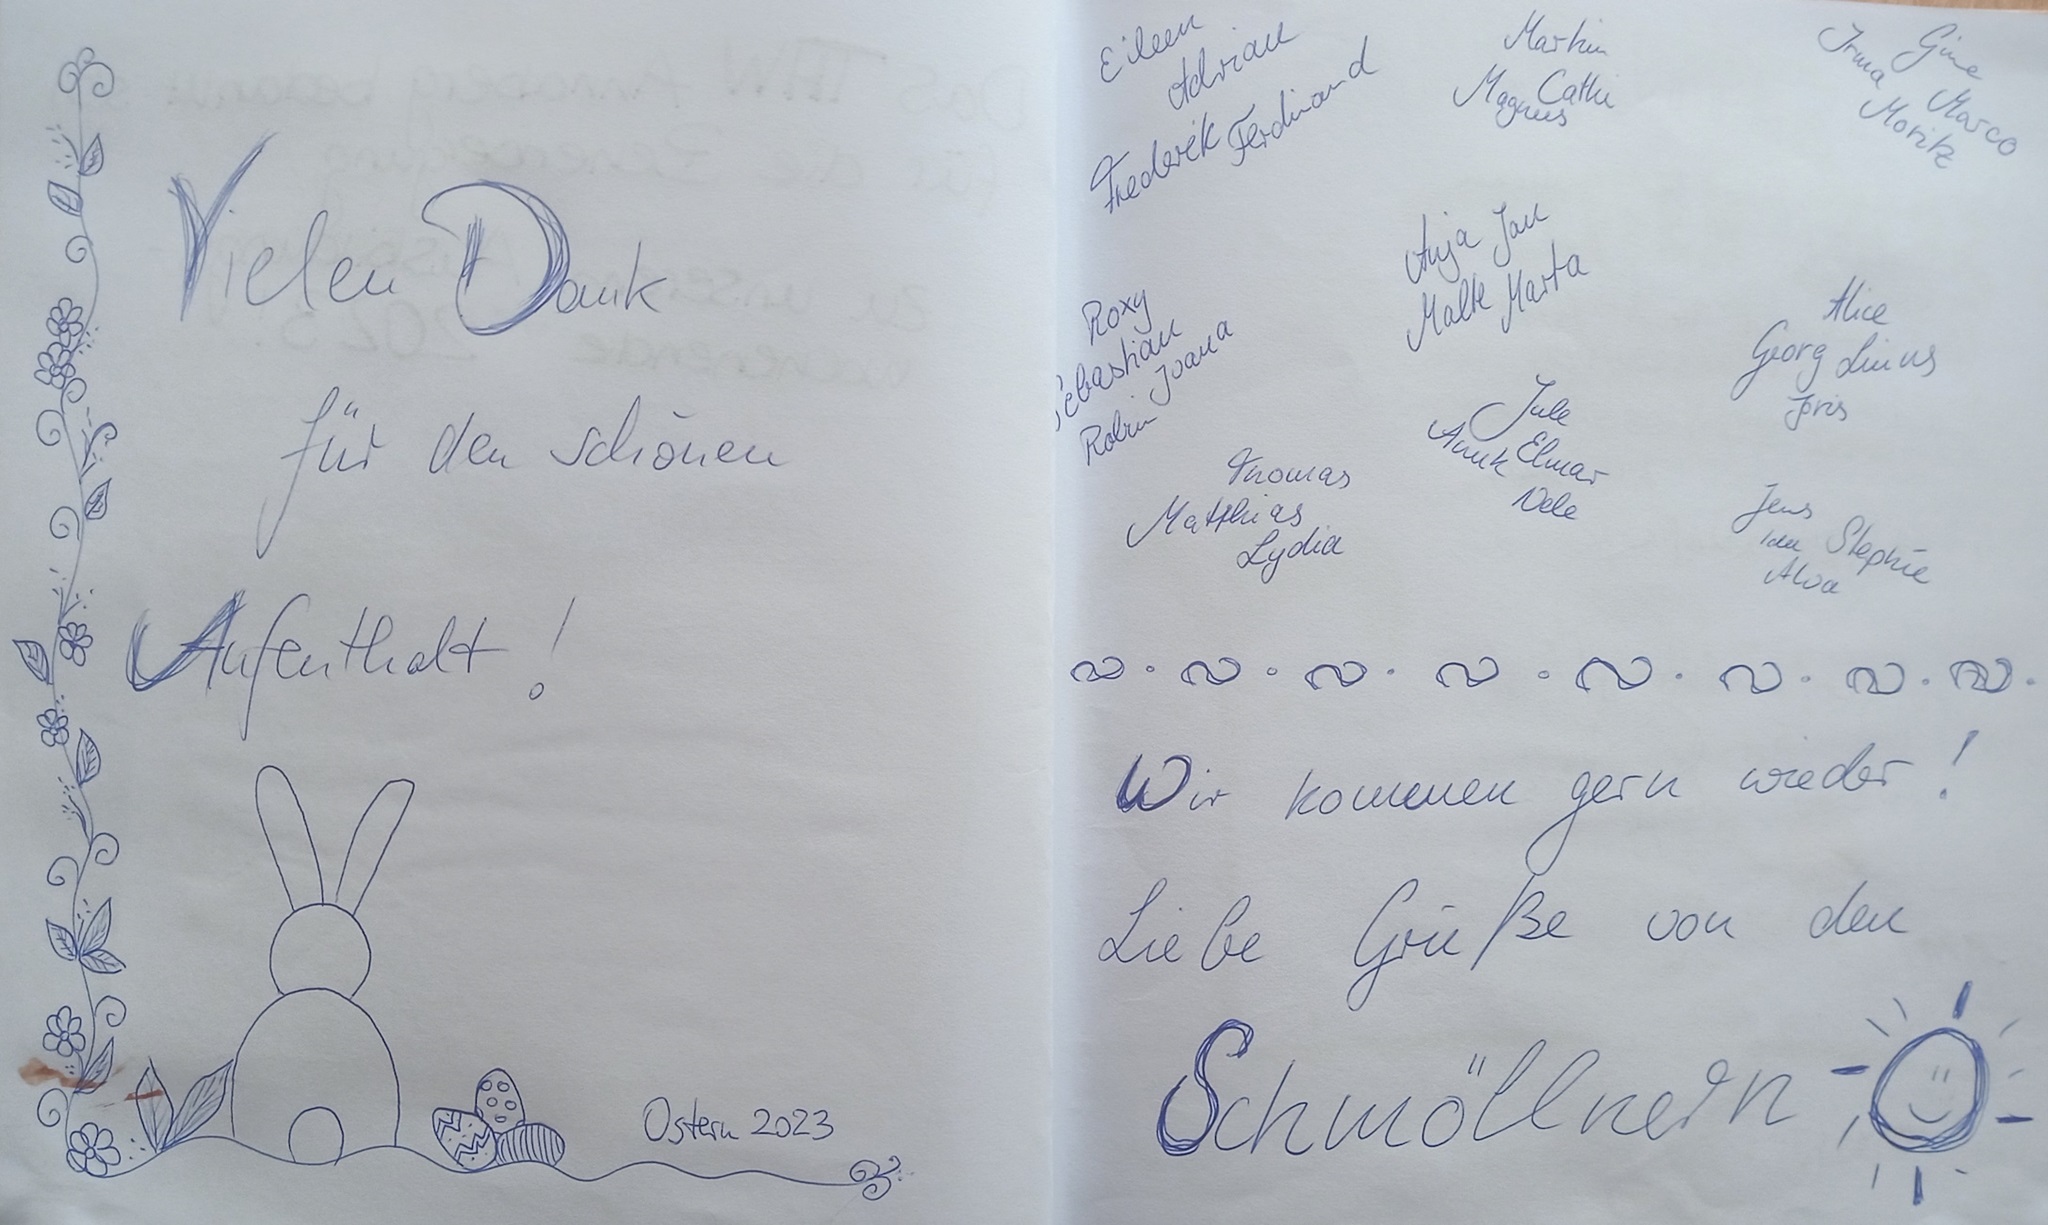 Vielen Dank
für den schönen
Aufenthalt!
Ostern 2023
Eileen
Adrian
Frederik Ferdinand
Martin
Cathi
Magnus
Gine
Irma Marco
Moritz
Anja Jan
Malte Marta
Roxy
Sebastian
Robin Joana
Alice
Georg Linus
Joris
Jule
Annk Elmar
Nele
Thomas
Matthias
Lydia
Jens
Ida Stephie
Alva
Wir kommen gern wieder!
Liebe Grüße von den
Schmöllnern